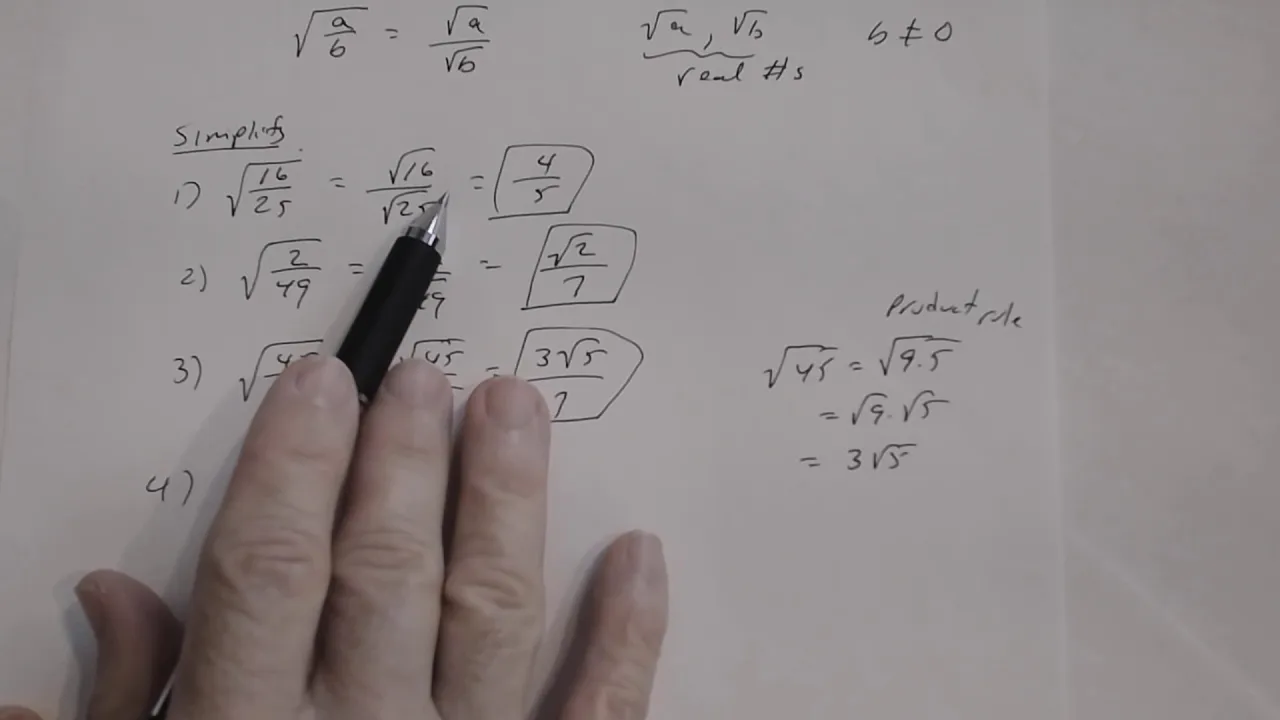 √(a/b) = √a/√b √a, √b b ≠ 0
real #s
Simplify
1) √(16/25) = √16/√25 = 4/5
2) √(2/49) = = √2/7
3) √45 = 3√5/7
4)
product rule
√45 = √9·5
= √9·√5
= 3√5